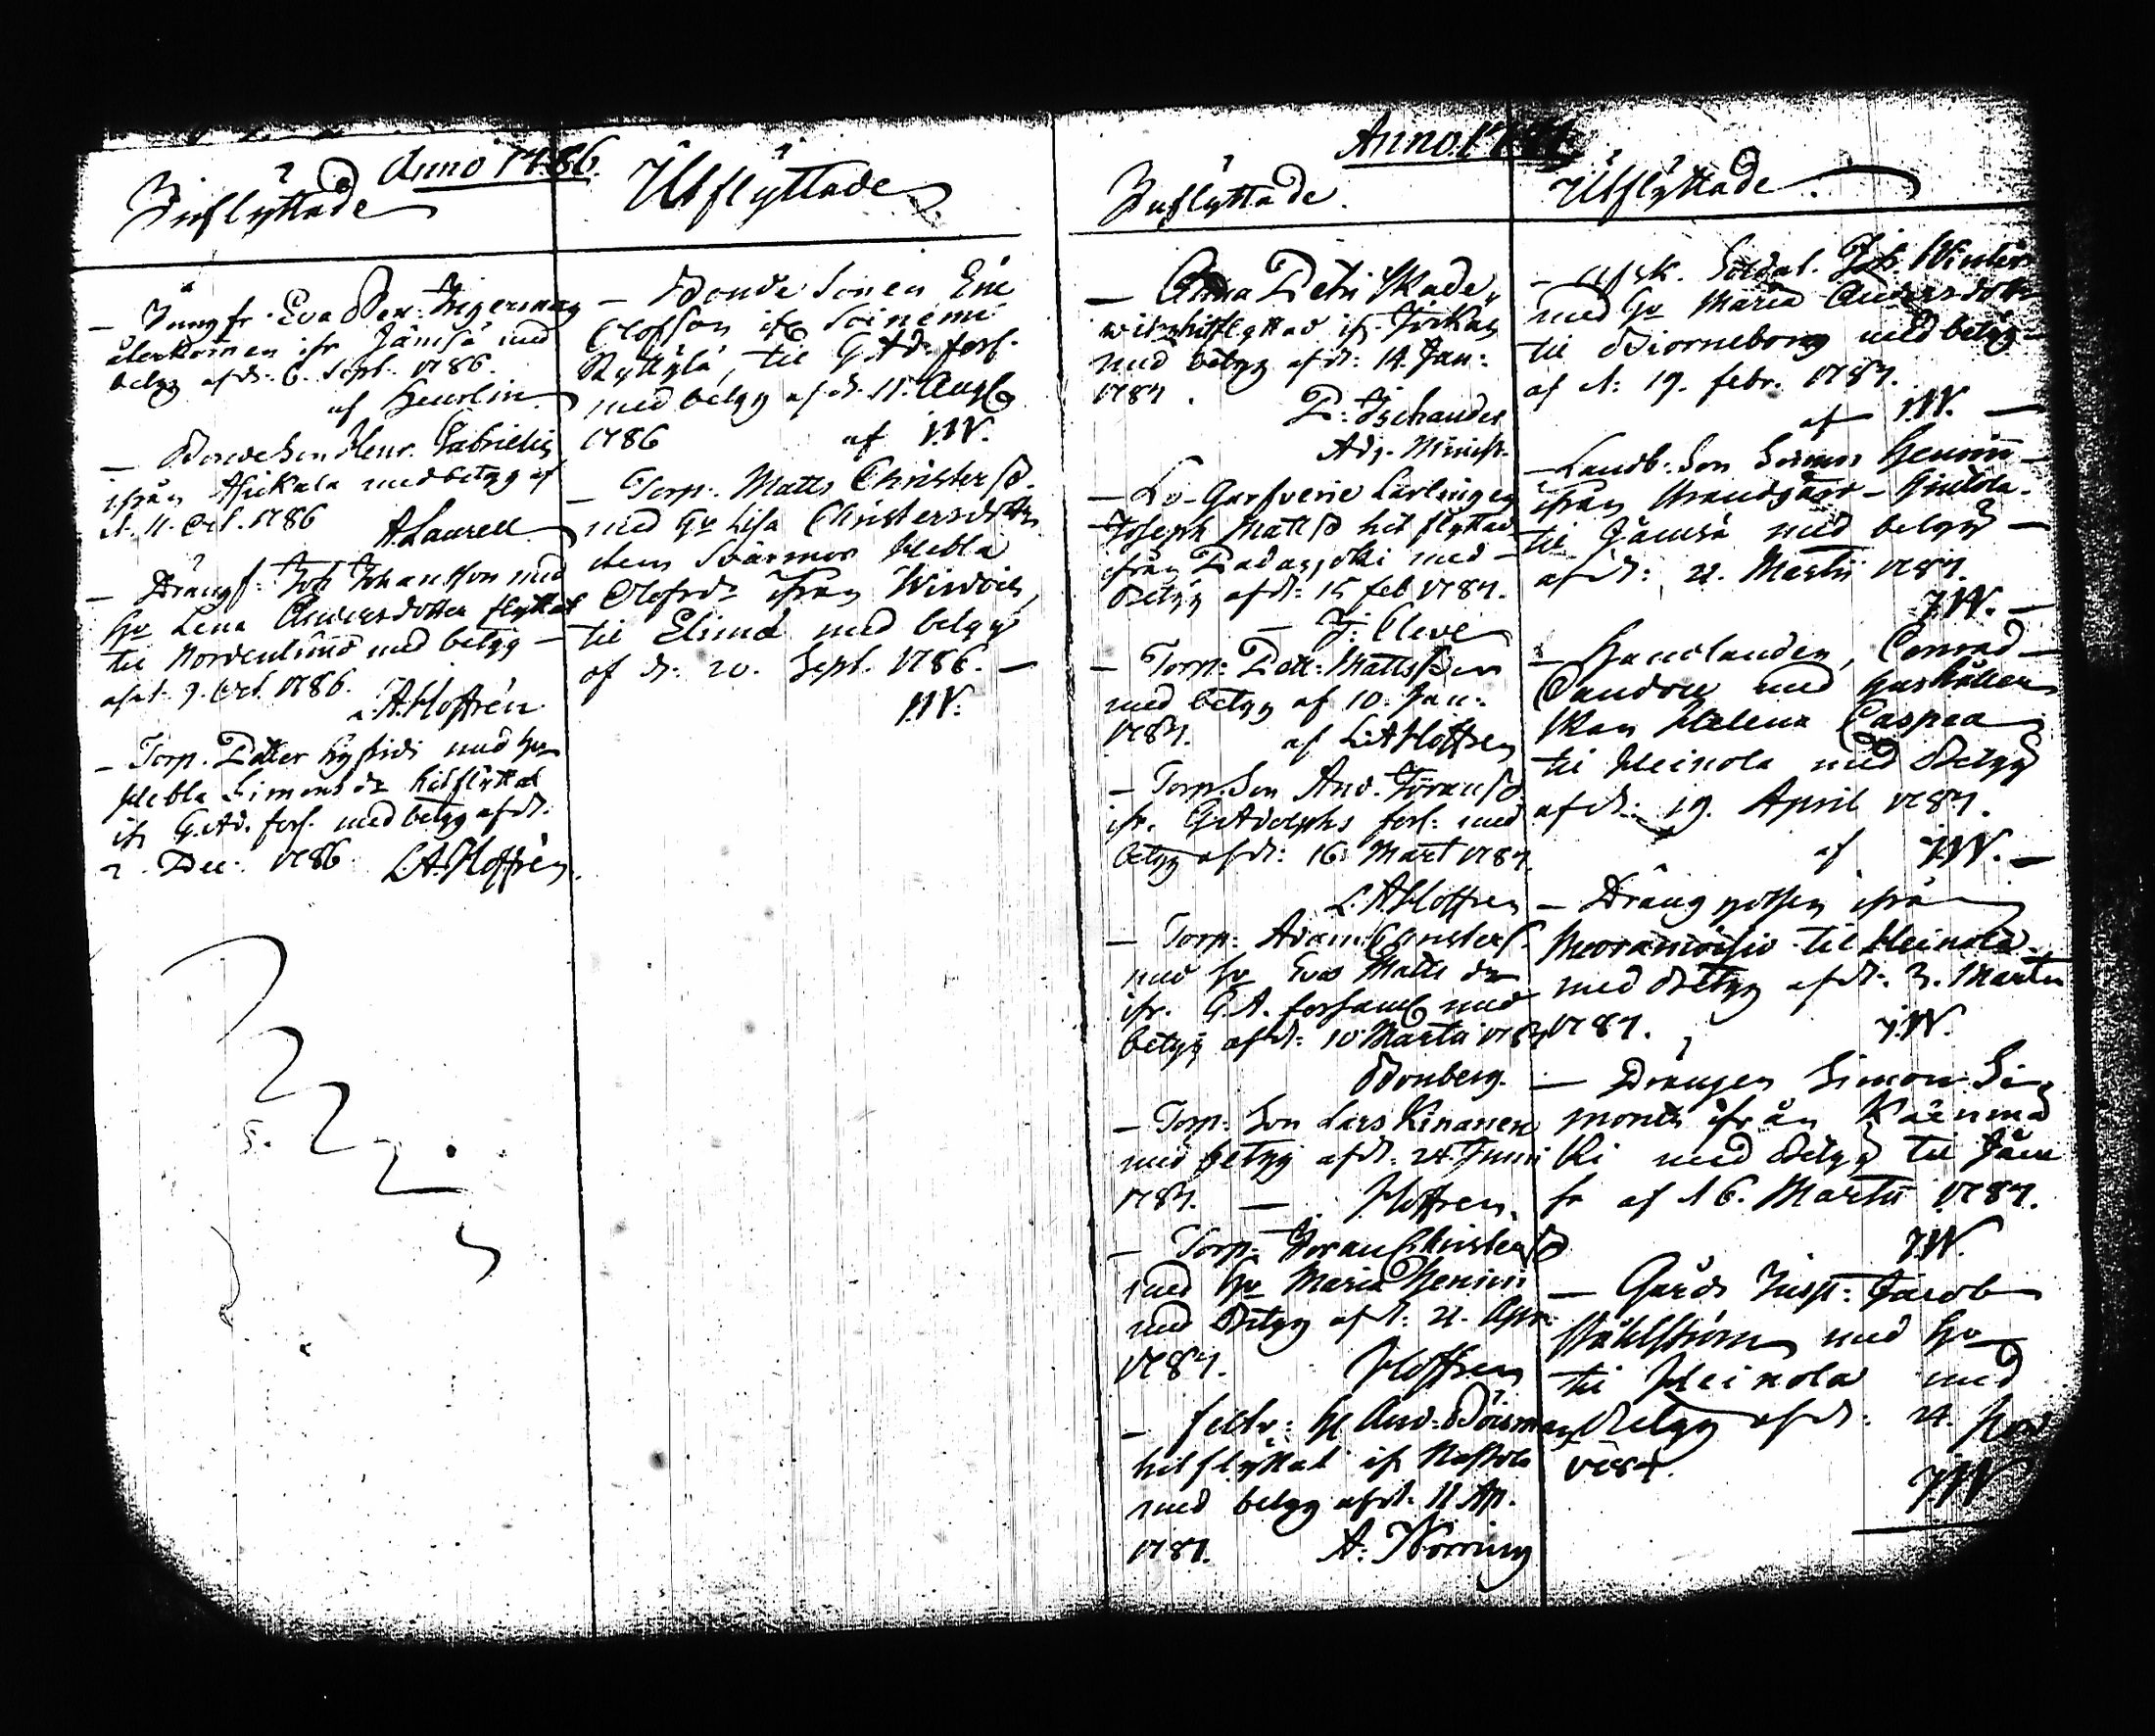 Anno 1786.
Inflyttade
— Jungfr. Eva
återkommen ifr Jämsä med
betyg af d: 6. Sept. 1786.
af Heurlin
— BondeSon Henr. Gabrielis
ifrån Asikala med betyg af
d. 11. Oct. 1786 A Laurell
— Drängs: Joh Johansson med
hu Lena Andersdotter flyttat
til Nordenlund med betyg —
af d. 9. Oct. 1786.
L A. Hoffrén
— Torp. Petter Sigfrids med hu
Hebla Simonsdr hitflyttat
ifr G. Ad. förs. med betyg af d.
2. Dec. 1786 L. A. Hoffrén
Utflyttade
— Bonde Sonen Eric
Olofson ifr Soiniemi
Ryttylä, til G. Ad. förs.
med betyg af d. 11. Aug
1786 af J.W.
— Torp. Matts Christerss.
med hu Lisa Christersdotter
dem Svärmor Hebla
Olofsdr ifrån
til Elimä med betyg
af d. 20. Sept. 1786. —
J.W.
Anno 1787
Inflyttade.
— Anna Petri Skade
hitflyttad ifr.
med betyg af d: 14. Jan:
1787.
P:
Adj. Minist.
— Lo-Garfveri Lärlingen
Joseph Mattss hitflyttad
ifrån Padasjoki med —
Betyg af d: 15 feb 1787.
— J: Cleve
— Torp: Pett: Mattsson
med betyg af 10. Jan:
1787. af L A Hoffren
— Torp. Son And. Göranss
ifr. G Adolphs förs: med
betyg af d: 16 Mart 1787.
L A Hoffren
— Torp: Adam Christerss.
med hu Eva Matts dr
ifr. G. A. församl med
betyg af d: 10 Martii 1787
Bonberg.
— Torp: Son Lars Kinanen
med betyg af d: 24 Junii
1787. — Hoffren.
— Torp: Göran Christerss
med hu Maria Henrici
med Betyg af d: 21. Apr:
1787. Hoffren
— Feltv: H And:
hitflyttat ifr
med betyg af d: 11 Ap.
1787. A:
Utflyttade.
— Afsk. Soldat. Joh. Winter
med hu Maria Andersdotter
til Biorneborg med betyg —
af d: 19. febr. 1787.
af J.W. —
— Landb: Son Simon Henrici —
ifrån
til Jämsä med betyg —
af d: 21. Martii 1787.
J.W. —
— Handlanden, Conrad —
med Hushåller
skan Helena Caspera
til Heinola med Betyg
af d: 19. April 1787.
af J.W. —
— Dräng ifrå
til Heinola
med Betyg af d: 3. Martii
1787. J.W.
— Drängen Simon Si
monis ifrån
ki med Betyg til Jäm
sä af d 6. Martii 1787.
J.W.
— Gårds Insp: Jacob
Ståhlström med hu
til Heinola med
Betyg af d: 24. Nov
1787.
J.W